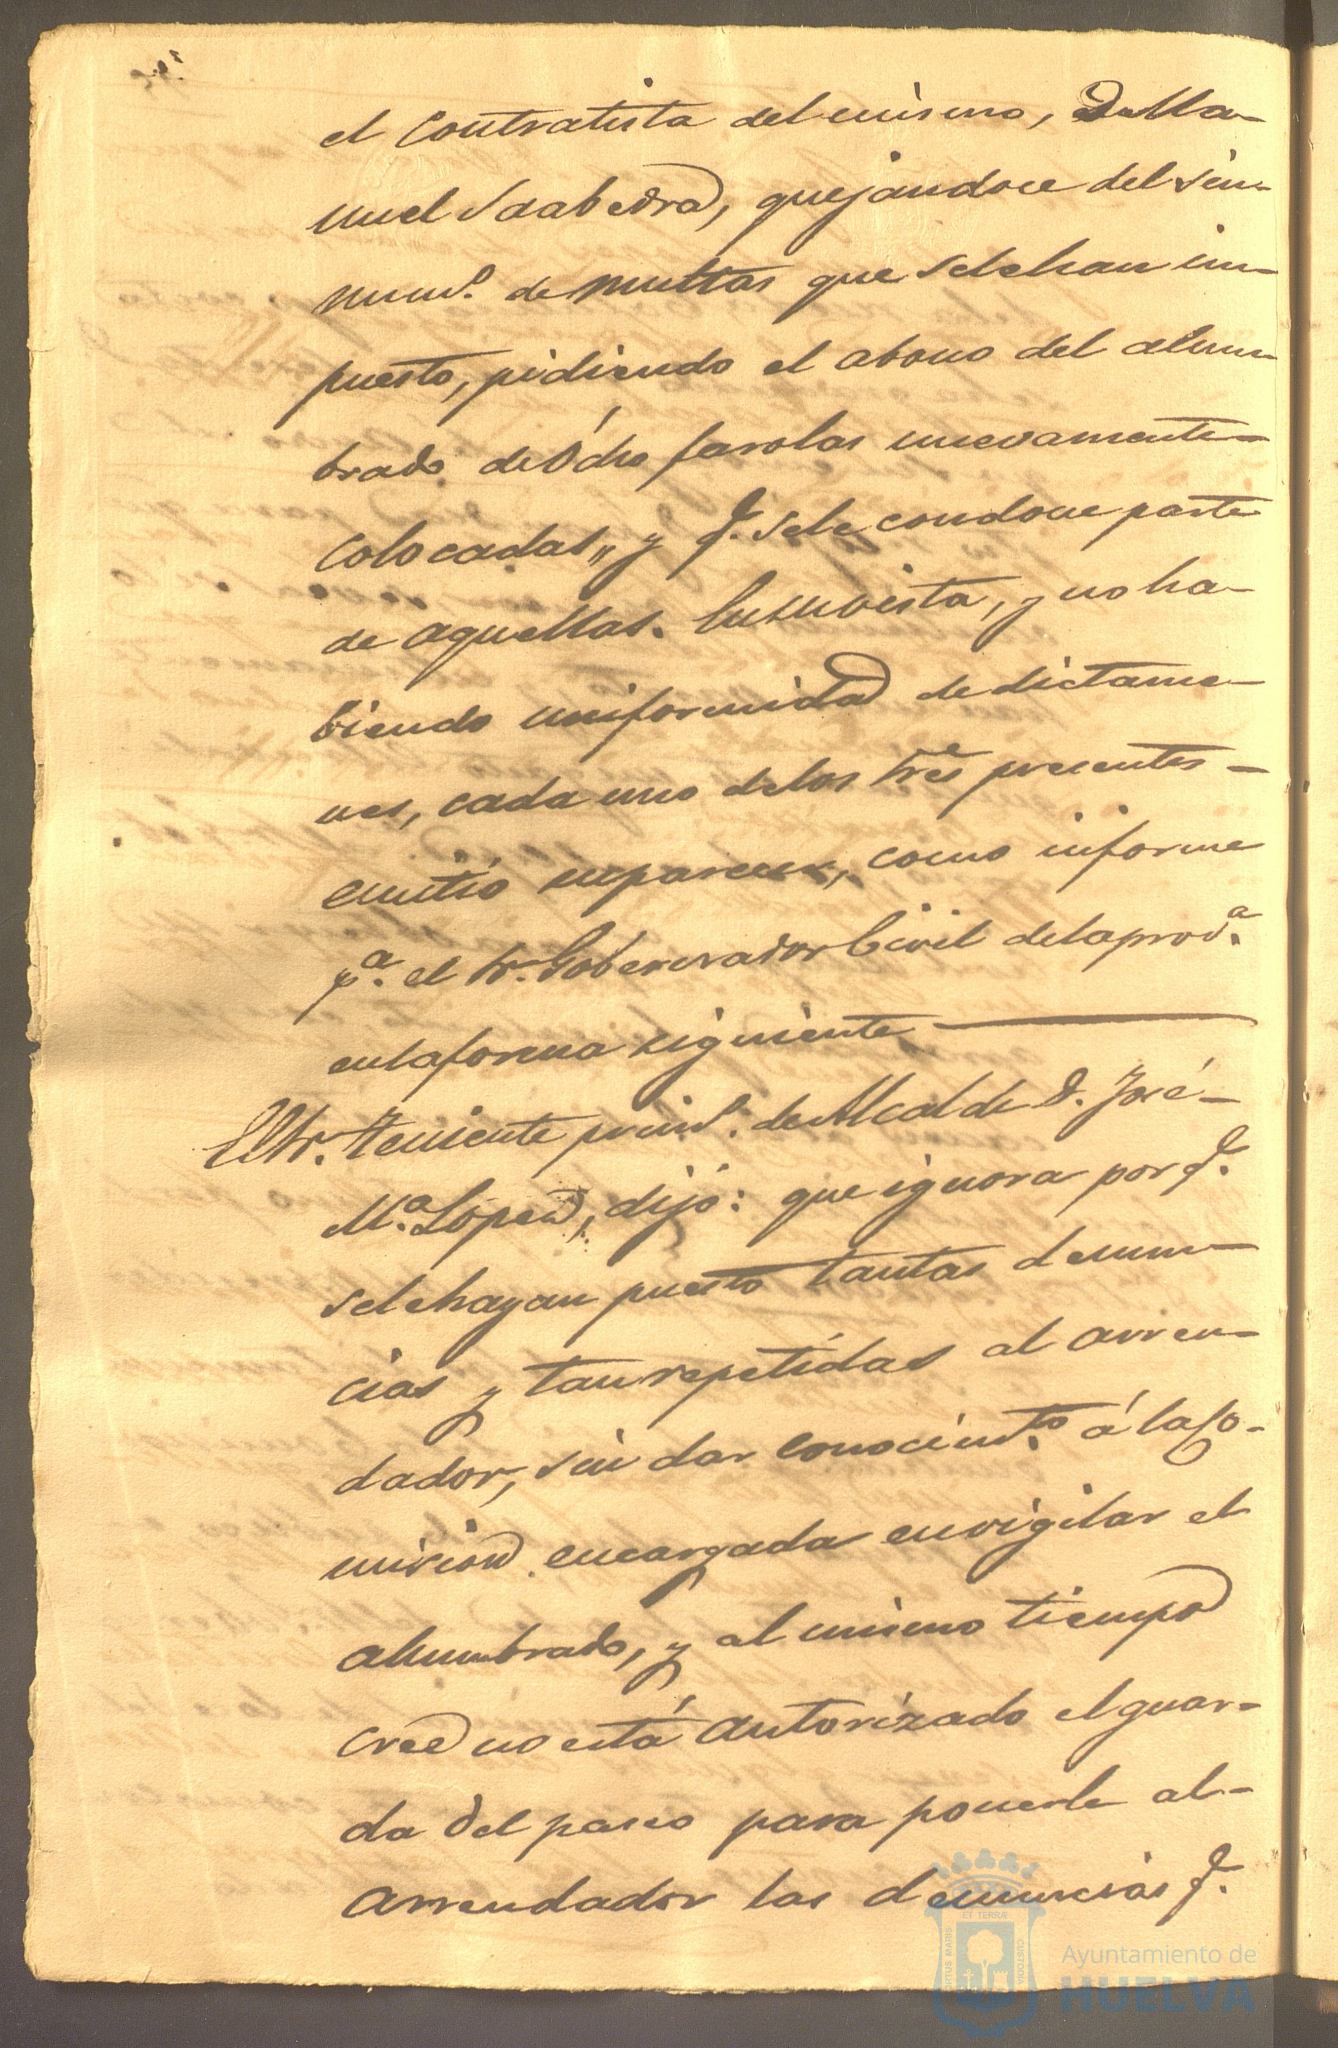 el contratista del mismo, D. Ma-
nuel Saabedra, quejandoce del sin-
num.o de multas que sele han im-
puesto, pidiendo el abono del alum-
brado de Ocho farolas nuevamente
colocadas, y q.e sele condone parte
de aquellas. En su vista, y no ha-
biendo uniformidad de dictame-
nes, cada uno delos tres precentes
emitió su parecer, como informe
p.a el Sr. Gobernador Civil dela prov.a
en la forma siguiente
El Sr. Teniente prim.o de Alcalde D. José
M.a Lopez, dijo: que ignora por q.e
sele hayan puesto tantas denun-
cias y tan repetidas al arren-
dador, sin dar conocim.to á la Co-
mision encargada en vigilar el
alumbrado, y al mismo tiempo
cree no está autorizado el guar-
da del paseo para ponerle al
arrendador las denuncias q.e
Ayuntamiento de
HUELVA